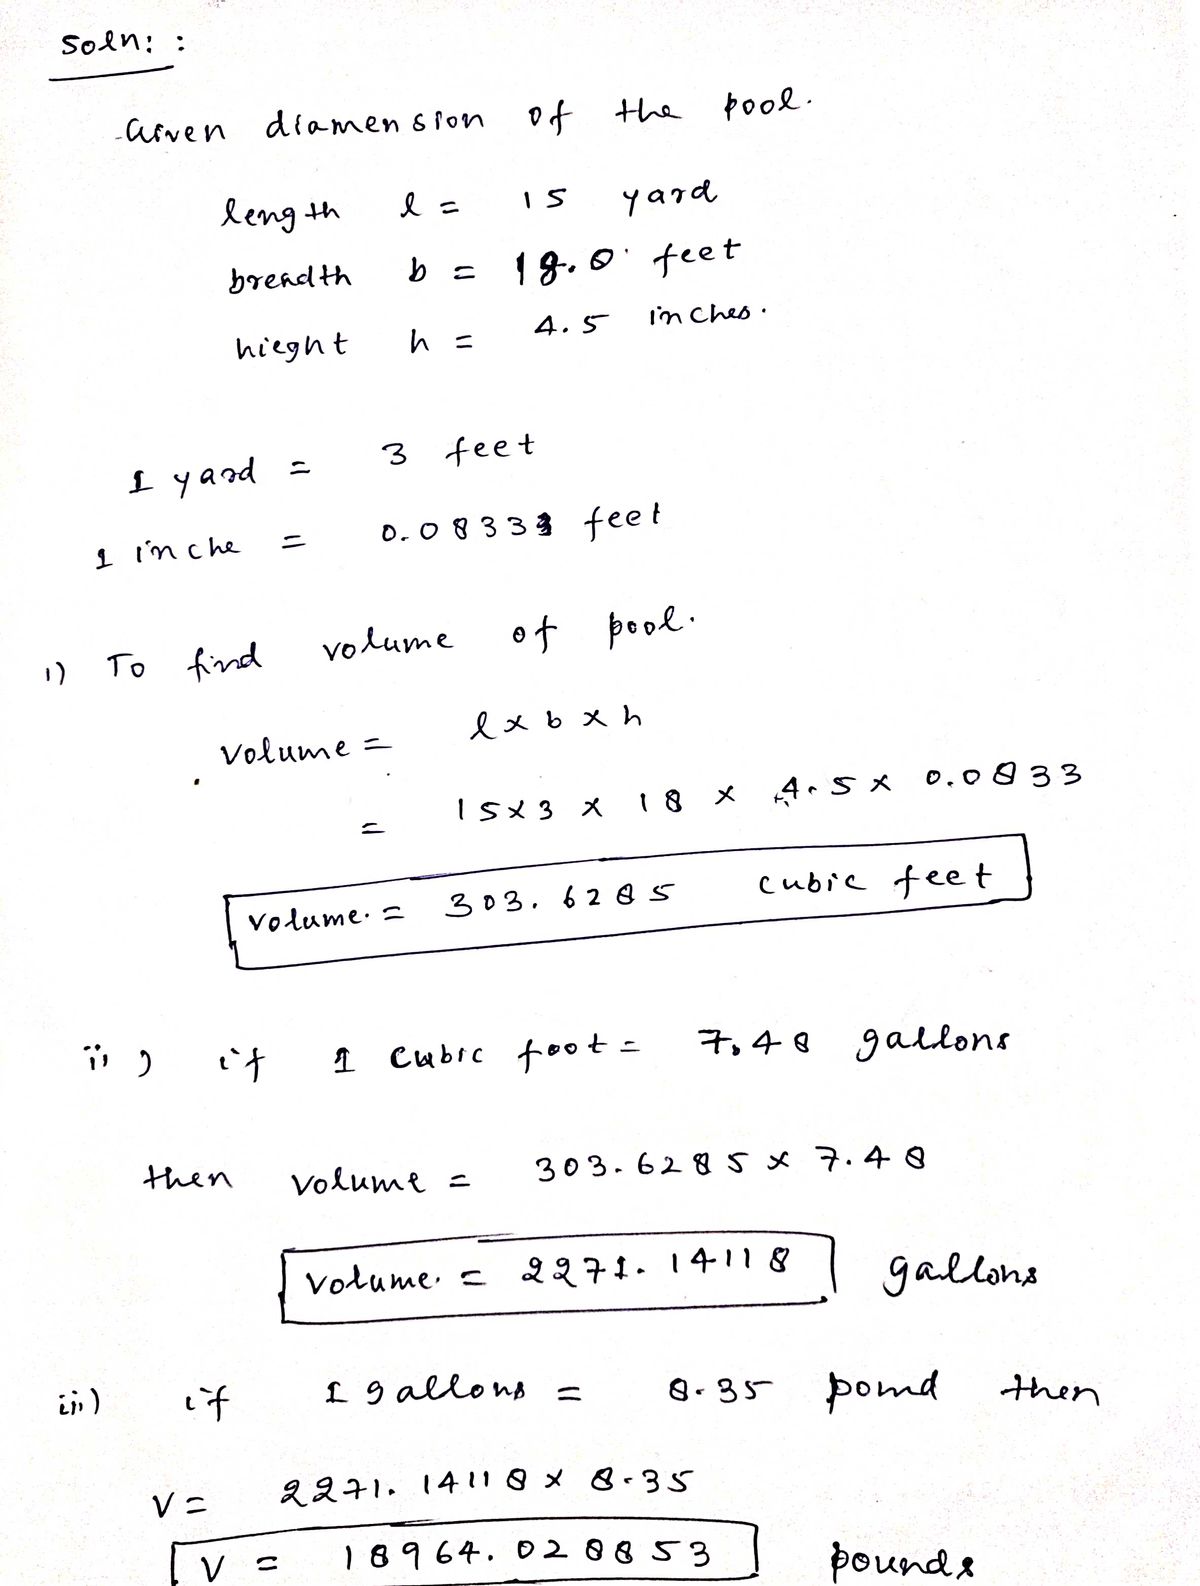 Soln: :
Given diamension of the pool.
length l = 15 yard
breadth b = 18.0 feet
hieght h = 4.5 inches.
1 yard = 3 feet
1 inche = 0.08333 feet
i) To find volume of pool.
volume = l x b x h
= 15x3 x 18 x 4.5 x 0.0833
volume. = 303.6285 cubic feet
ii) if 1 cubic foot = 7.48 gallons
then volume = 303.6285 x 7.48
volume. = 2271.14118 gallons
iii) if 1 gallons = 8.35 pomd then
V = 2271.14118 x 8.35
V = 18964.028853 pounds